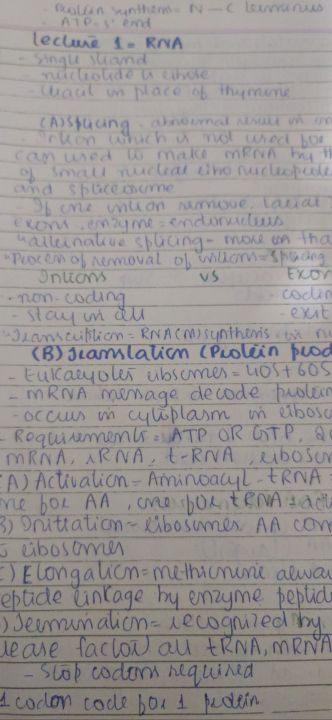 - Protein synthesis = N - C terminus
- ATP - 5' end
lecture 1 = RNA
- single strand
- nucleotide is ribose
- Uracil in place of thymine
(A) Splicing - abnormal result in
which is not used for
can used to make mRNA by
of small nuclear ribonucleoprote
and spliceosome
- If one intron remove, lariat
exons, enzyme = endonucleus
"alternative splicing - more on tha
"Process of removal of introns = splicing
Introns vs Exon
- non-coding - codin
- stay in - exit
"Transcription = RNA (M) synthesis in n
(B) Translation (Protein prod
- Eukaryotes ribosomes = 40S + 60S
- mRNA message decode protein
- occurs in cytoplasm in riboso
- Requirements = ATP OR GTP,
mRNA, rRNA, t-RNA, ribosom
A) Activation = Aminoacyl-tRNA
one for AA, one for tRNA =
B) Initiation = ribosomes AA com
ribosomes
C) Elongation = methionine alway
peptide linkage by enzyme peptid
) Termination = recognized by
lease factor) all tRNA, mRNA
- Stop codons required
1 codon code for 1 protein